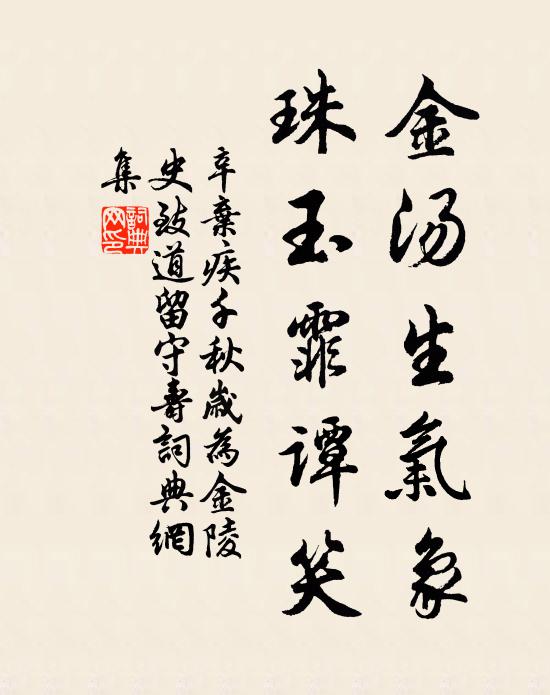 金湯生氣象
珠玉霏譚笑
辛棄疾千秋歲為金陵
史致道留守壽詞典網
集
詞典網印